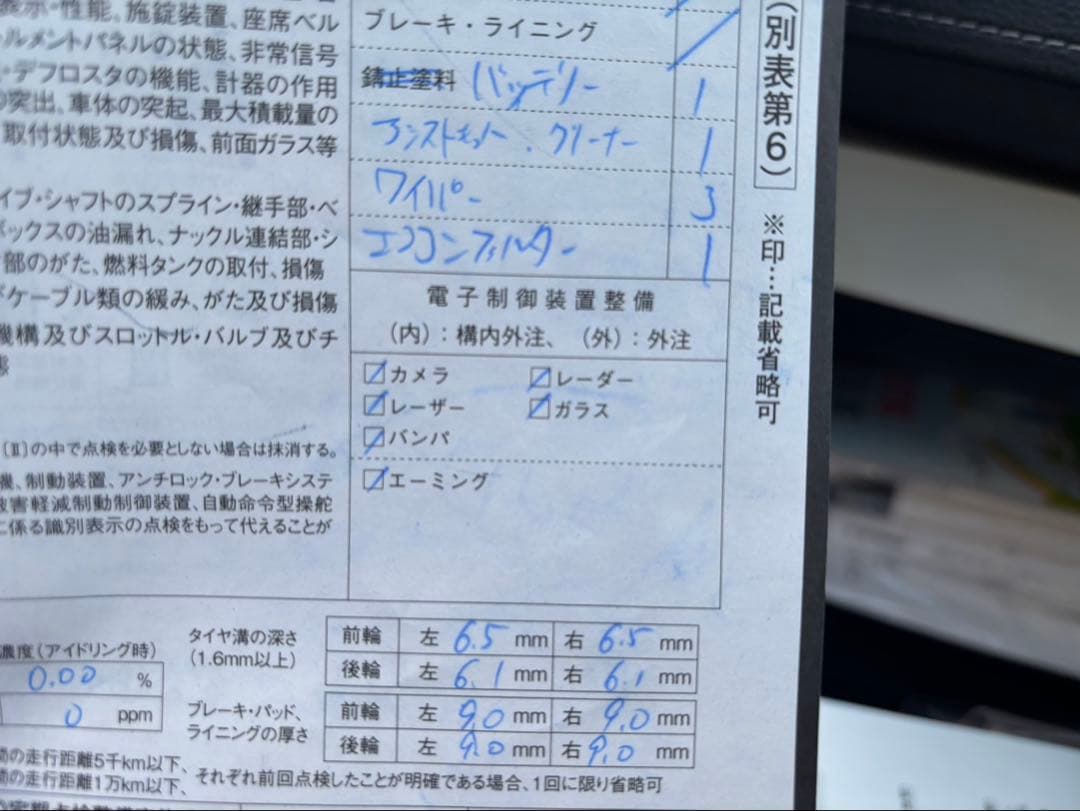 表示・性能、施錠装置、座席ベル
ルメントパネルの状態、非常信号
・デフロスタの機能、計器の作用
の突出、車体の突起、最大積載量の
取付状態及び損傷、前面ガラス等
イブ・シャフトのスプライン・継手部・ベ
ボックスの油漏れ、ナックル連結部・シ
部のがた、燃料タンクの取付、損傷
ケーブル類の緩み、がた及び損傷
機構及びスロットル・バルブ及びチ
態
〔Ⅱ〕の中で点検を必要としない場合は抹消する。
機、制動装置、アンチロック・ブレーキシステ
害軽減制動制御装置、自動命令型操舵
に係る識別表示の点検をもって代えることが
ブレーキ・ライニング
錆止塗料 バッテリー 1
クリーナー 1
ワイパー 3
エアコンフィルター 1
電子制御装置整備
(内):構内外注、(外):外注
カメラ レーダー
レーザー ガラス
バンパ
エーミング
(別表第6)
※印…記載省略可
濃度(アイドリング時)
0.00 %
0 ppm
タイヤ溝の深さ
(1.6mm以上)
前輪 左 6.5 mm 右 6.5 mm
後輪 左 6.1 mm 右 6.1 mm
ブレーキ・パッド、
ライニングの厚さ
前輪 左 9.0 mm 右 9.0 mm
後輪 左 9.0 mm 右 9.0 mm
の走行距離5千km以下、
の走行距離1万km以下、
それぞれ前回点検したことが明確である場合、1回に限り省略可